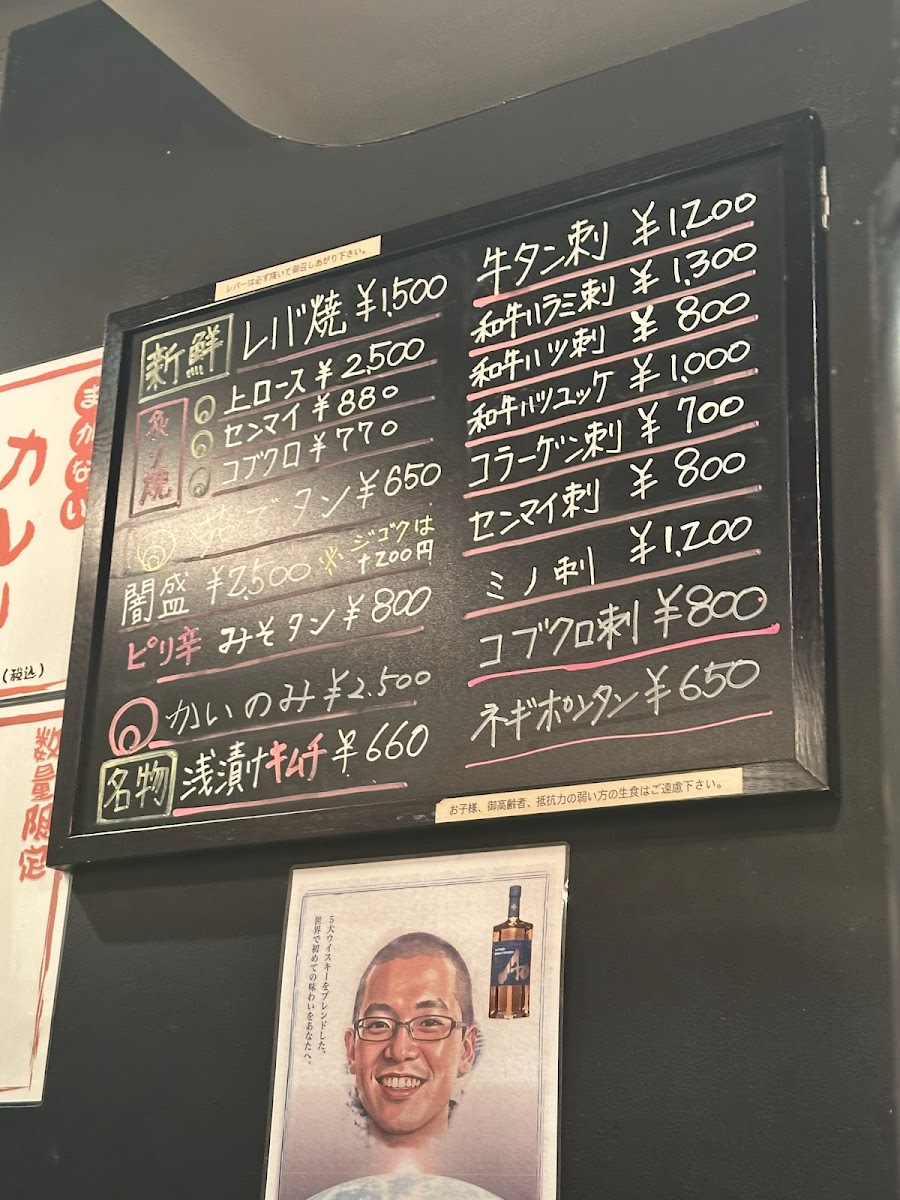 レバーは必ず焼いて御召しあがり下さい。
新鮮 レバ焼 ¥1,500
炙り焼
上ロース ¥2,500
センマイ ¥880
コブクロ ¥770
タン ¥650
闇盛 ¥2,500 ※ジゴクは+200円
ピリ辛 みそタン ¥800
かいのみ ¥2,500
名物 浅漬けキムチ ¥660
牛タン刺 ¥1,200
和牛ハラミ刺 ¥1,300
和牛ハツ刺 ¥800
和牛ハツユッケ ¥1,000
コラーゲン刺 ¥700
センマイ刺 ¥800
ミノ刺 ¥1,200
コブクロ刺 ¥800
ネギポンタン ¥650
お子様、御高齢者、抵抗力の弱い方の生食はご遠慮下さい。
まかない
カレー
(税込)
数量限定
5大ウイスキーをブレンドした、
世界で初めての味わいをあなたへ。
Ao